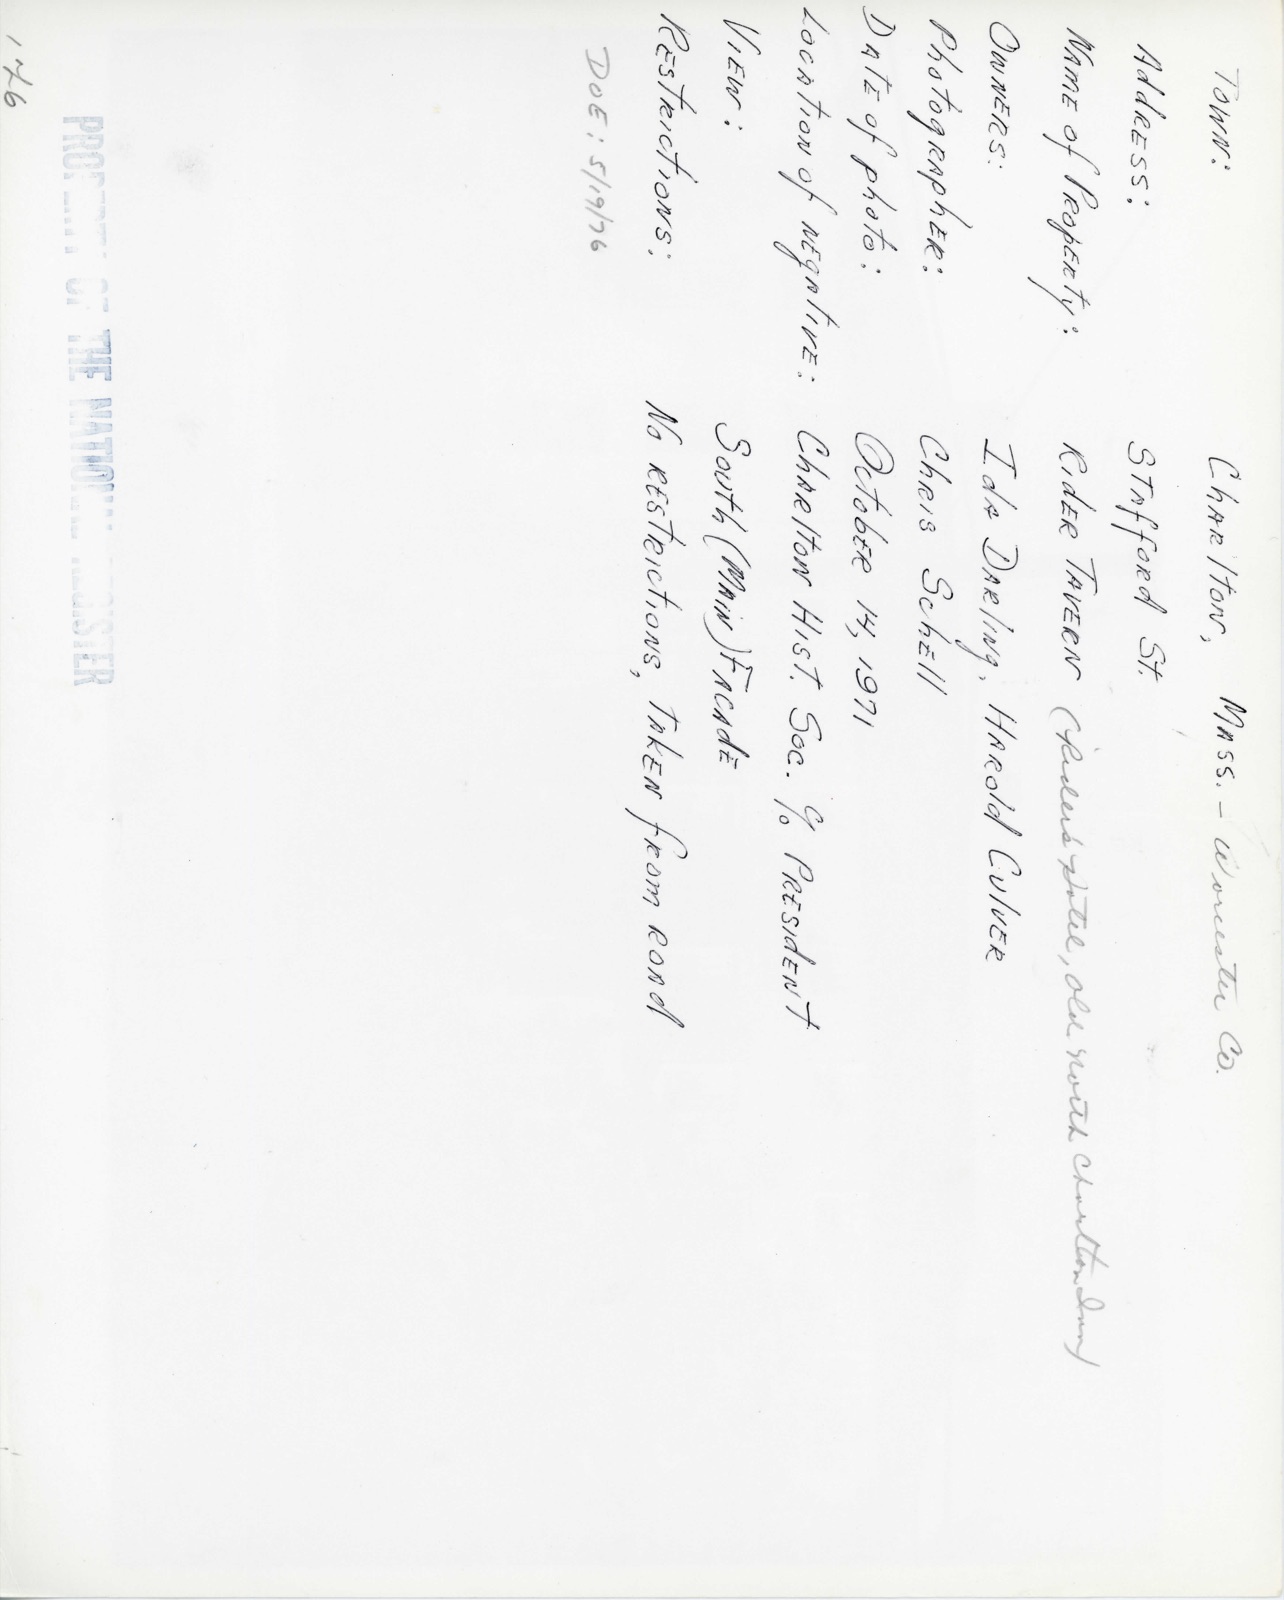 Town: Charlton, Mass. - Worcester Co.
Address: Stafford St.
Name of Property: Rider Tavern (Rider's Hotel, Old North Charlton Inn)
Owners: Ida Darling, Harold Culver
Photographer: Chris Schell
Date of photo: October 14, 1971
Location of negative: Charlton Hist. Soc. c/o President
View: South (Main) Facade
Restrictions: No restrictions, Taken from road
DOE: 5/19/76
PROPERTY OF THE NATIONAL REGISTER